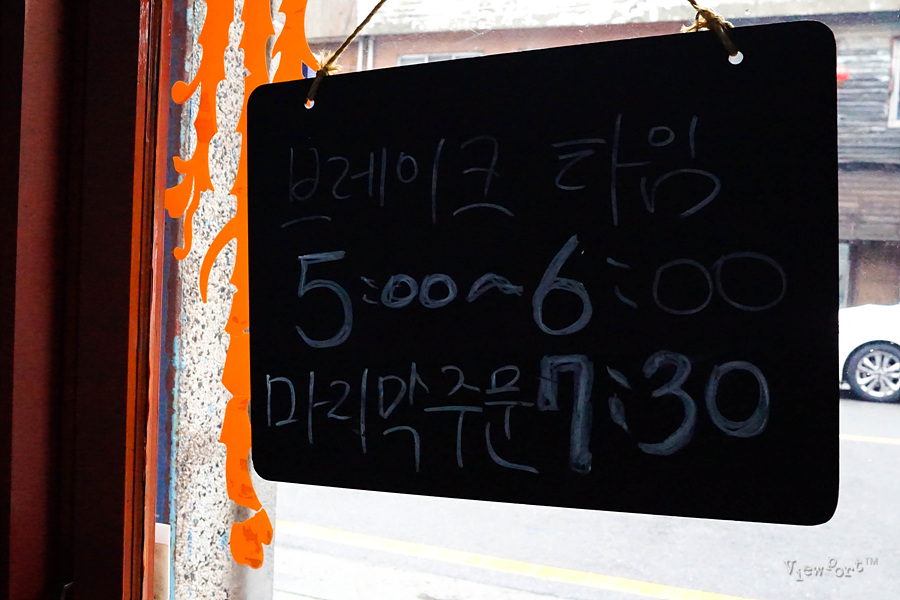 브레이크 타임
5:00~6:00
마리막주문 7:30
Viewport™